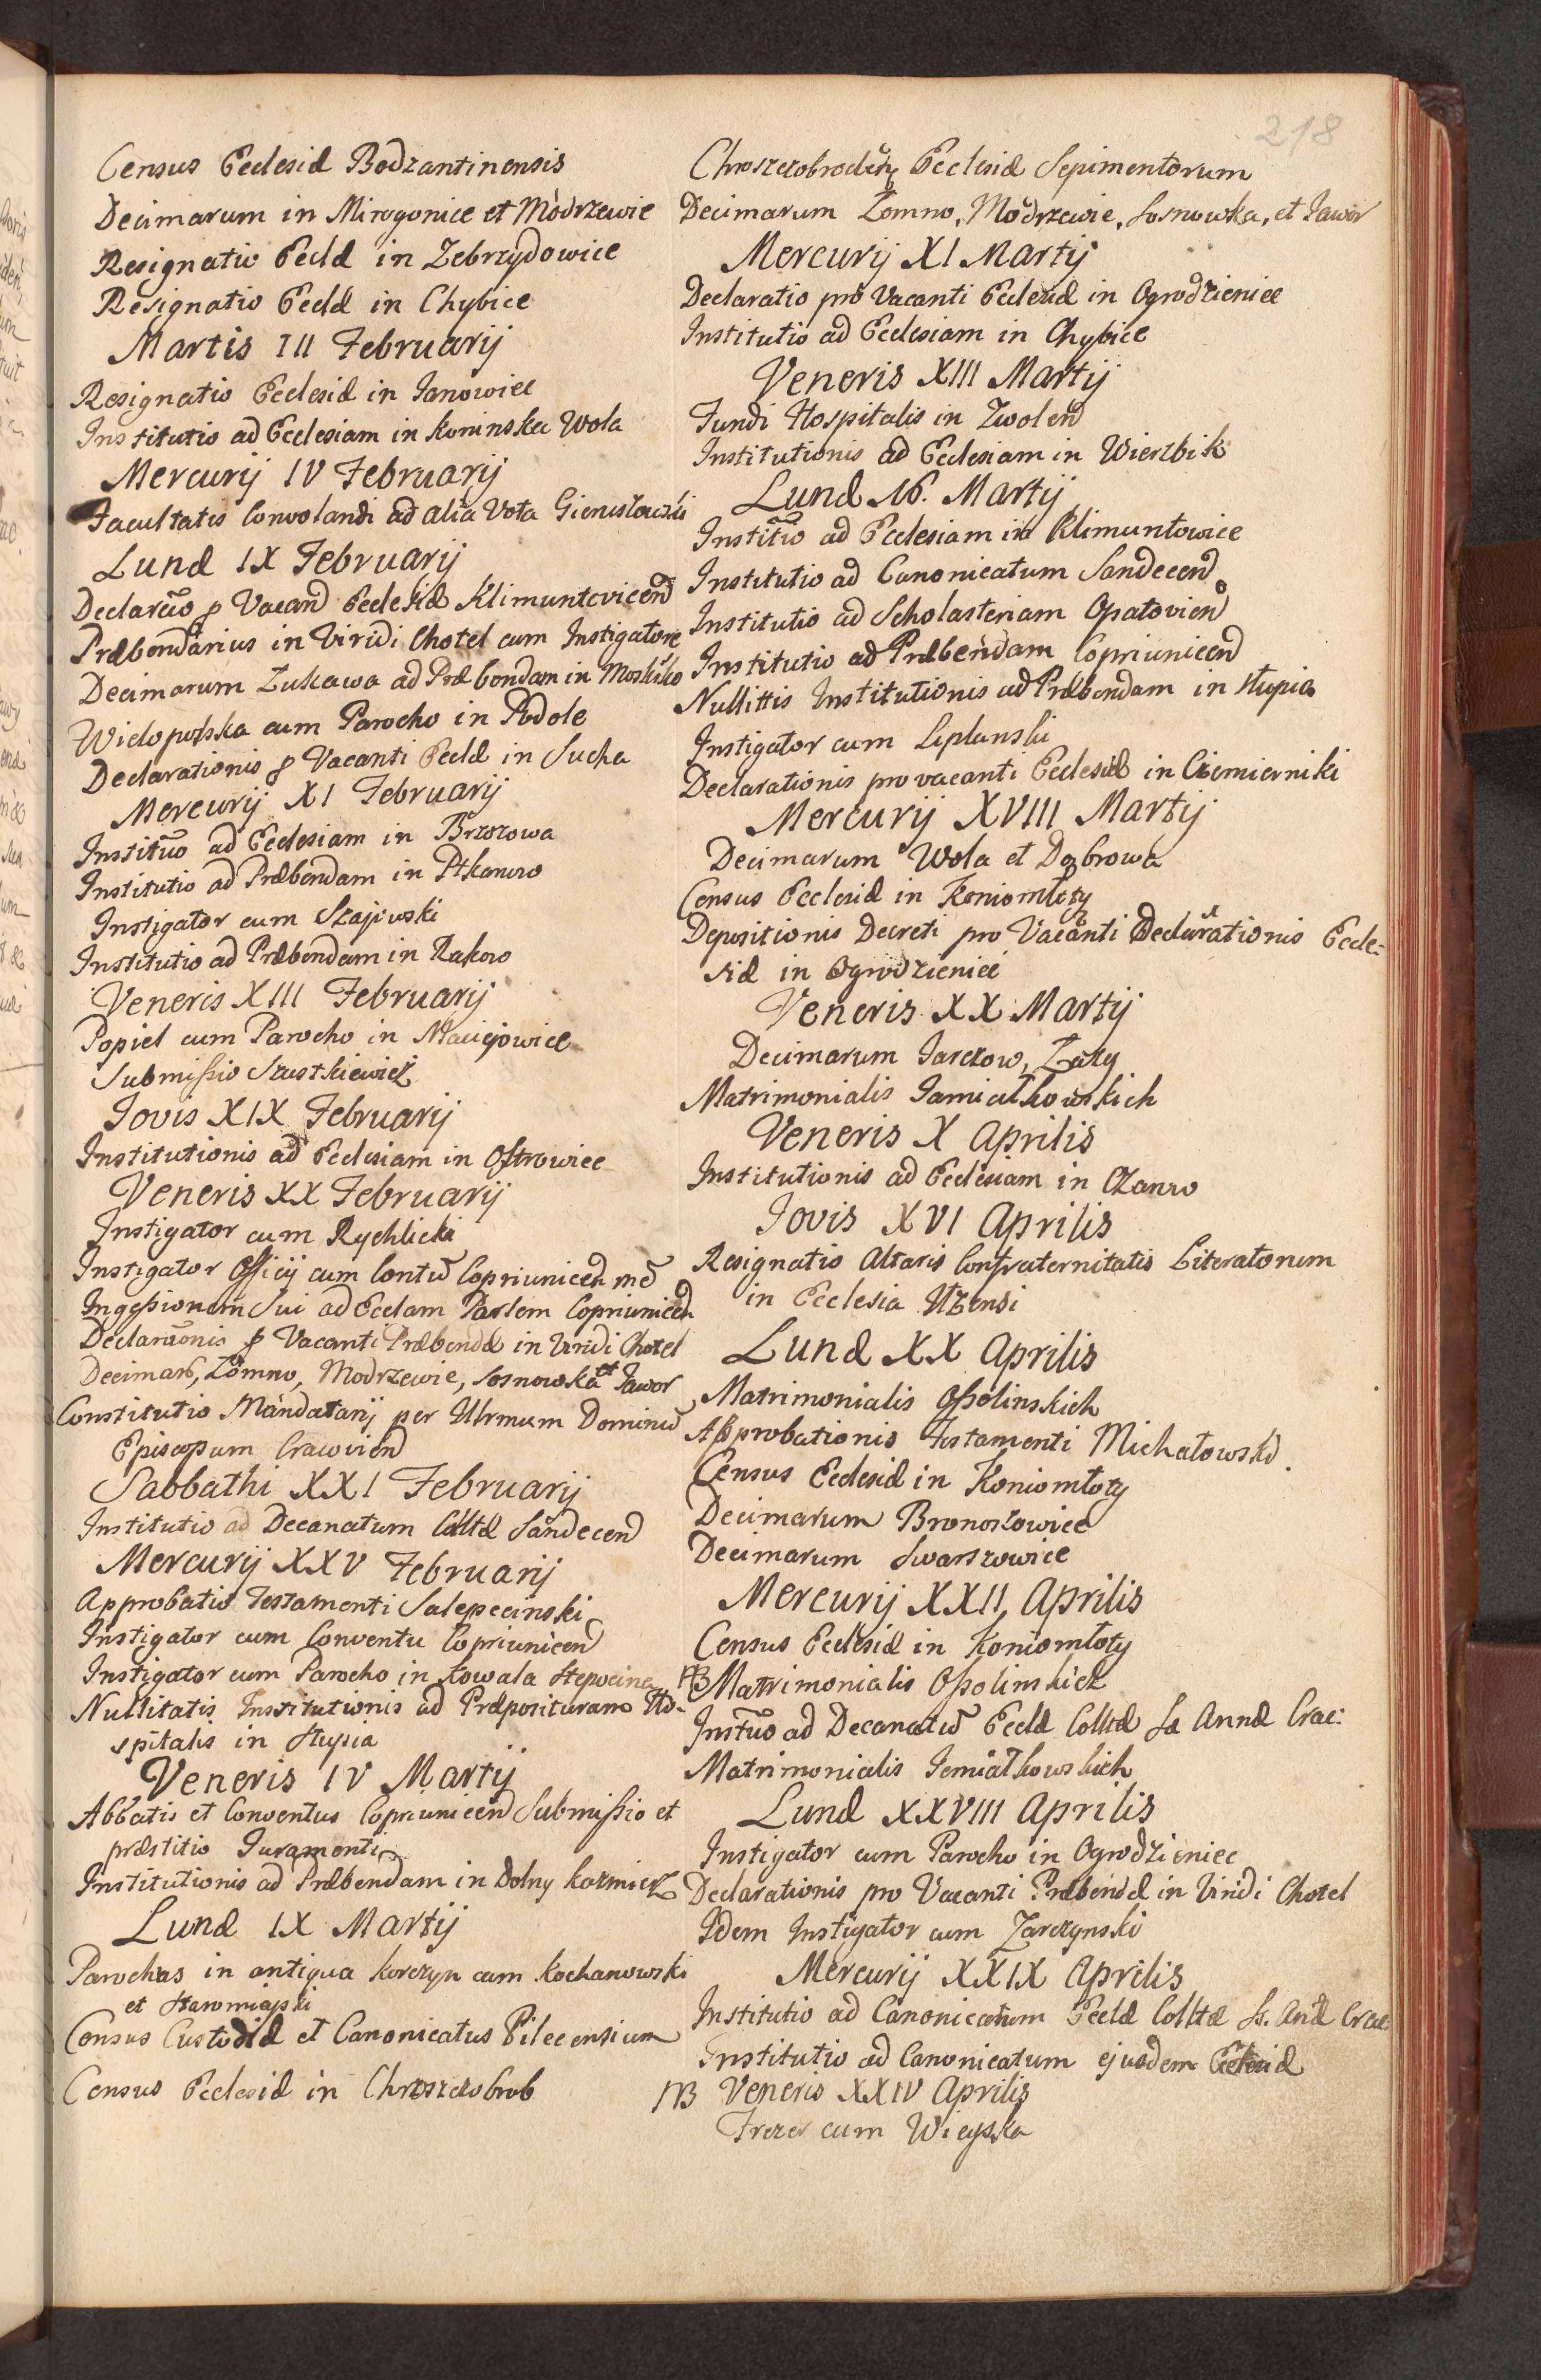 218
Census Ecclesiæ Bodzantinensis
Decimarum in Mirogonice et Modrzewie
Resignatio Eccłæ in Zebrzydowice
Resignatio Eccłæ in Chybice
Martis III Februarij
Resignatio Ecclesiæ in Janowiec
Institutio ad Ecclesiam in Koninska Wola
Mercurij IV Februarij
Facultatis Convolandi ad alia Vota
Lunæ IX Februarij
Declarāo p Vacanō Ecclesiæ Klimuntovicenō
Præbendarius in Viridi Chotel cum Instigatore
Decimarum Zukawa ad Præbendam in
Wielopolska cum Parocho in Podole
Declarationis p Vacanti Eccłæ in Sucha
Mercurij XI Februarij
Institūo ad Ecclesiam in Brzozowa
Institutio ad Præbendam in Ptkanow
Instigator cum Szajowski
Institutio ad Præbendam in Rakow
Veneris XIII Februarij
Popiel cum Parocho in Maciejowice
Submissio Szustkiewicz
Jovis XIX Februarij
Institutionis ad Ecclesiam in Ostrowiec
Veneris XX Februarij
Instigator cum Rychlicki
Instigator Officij cum Contū Copriunicen nrō
Ingessionem Sui ad Ecclam Parlem Copriunicen
Declarāonis p Vacanti Præbendæ in Viridi Chotel
Decimar, Zomno, Modrzewie, Sosnowka et Jawor
Constitutio Mandatarij per Illrmum Dominū
Episcopum Cracovienō
Sabbathi XXI Februarij
Institutio ad Decanatum Colltæ Sandecenō
Mercurij XXV Februarij
Approbatio Testamenti Salepecinski
Instigator cum Conventu Copriunicenō
Instigator cum Parocho in Kowala Stepocina
Nullitatis Institutionis ad Præposituram Ho-
spitalis in Słupia
Veneris IV Martij
Abbatis et Conventus Copriunicenō Submissio et
præstitio Juramenti
Institutionis ad Præbendam in Dolny Kazmierz
Lunæ IX Martij
Parochus in antiqua Korczyn cum Kochanowski
et Staromiejski
Census Custodiæ et Canonicatus Pilecensium
Census Ecclesiæ in Chroszczobrob
Ecclesiæ Sepimentorum
Decimarum Zomno, Modrzewie, Sosnowka, et Jawor
Mercurij XI Martij
Declaratio pro Vacanti Ecclesiæ in Ogrodzieniec
Institutio ad Ecclesiam in Chybice
Veneris XIII Martij
Fundi Hospitalis in Zwolen
Institutionis ad Ecclesiam in Wierzbik
Lunæ 16. Martij
Institūo ad Ecclesiam in Klimuntowice
Institutio ad Canonicatum Sandecenō
Institutio ad Scholasteriam Opatovienō
Institutio ad Præbendam Copriunicenō
Nullittis Institutionis ad Præbendam in Słupia
Instigator cum Liplanski
Declarationis pro vacanti Ecclesiæ in Czemierniki
Mercurij XVIII Martij
Decimarum Wola et Dąbrowa
Census Ecclesiæ in Koniomłoty
Depositionis Decreti pro Vacanti Declarationis Eccle-
siæ in Ogrodzieniec
Veneris XX Martij
Decimarum Jarczow, Zary
Matrimonialis Jamiałkowskich
Veneris X Aprilis
Institutionis ad Ecclesiam in Czanow
Jovis XVI Aprilis
Resignatio Altaris Confraternitatis Literatorum
in Ecclesia Ilzensi
Lunæ XX Aprilis
Matrimonialis Ossolinskich
Approbationis Testamenti Michałowski.
Census Ecclesiæ in Koniomłoty
Decimarum Bronoszowice
Decimarum Swarszowice
Mercurij XXII, Aprilis
Census Ecclesiæ in Koniomłoty
NB Matrimonialis Ossolinskich
Instūo ad Decanatū Eccłæ Colltæ Sæ Annæ Crac:
Matrimonialis Jemiałkowskich
Lunæ XXVIII Aprilis
Instigator cum Parocho in Ogrodzieniec
Declarationis pro Vacanti Præbendæ in Viridi Chotel
Idem Instigator cum Zarczynski
Mercurij XXIX Aprilis
Institutio ad Canonicatum Eccłæ Colltæ Ss. Anæ Crac
Institutio ad Canonicatum ejusdem Ecclesiæ
NB Veneris XXIV Aprilis
Frezer cum Wieyska